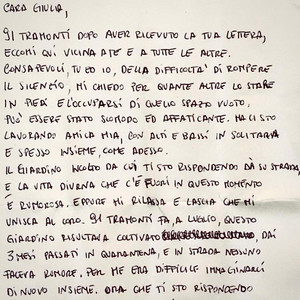 CARA GIULIA,
91 TRAMONTI DOPO AVER RICEVUTO LA TUA LETTERA,
ECCOMI QUI VICINA A TE E A TUTTE LE ALTRE.
CONSAPEVOLI, TU ED IO, DELLA DIFFICOLTA' DI ROMPERE
IL SILENZIO, MI CHIEDO PER QUANTE ALTRE LO STARE
IN PIEDI E L'OCCUPARSI DI QUELLO SPAZIO VUOTO,
PUO' ESSERE STATO SCOMODO ED AFFATICANTE. MA CI STO
LAVORANDO AMICA MIA, CON ALTI E BASSI, IN SOLITARIA
E SPESSO INSIEME, COME ADESSO.
IL GIARDINO INCOLTO DA CUI TI STO RISPONDENDO DÀ SU STRADA,
E LA VITA DIURNA CHE C'È FUORI IN QUESTO MOMENTO
È RUMOROSA. EPPURE MI RILASSA E LASCIA CHE MI
UNISCA AL CORO. 91 TRAMONTI FA, A LUGLIO, QUESTO
GIARDINO RISULTAVA COLTIVATO DAI
3 MESI PASSATI IN QUARANTENA, E IN STRADA NESSUNO
FACEVA RUMORE. PER ME ERA DIFFICILE IMMAGINARCI
DI NUOVO INSIEME. ORA CHE TI STO RISPONDENDO